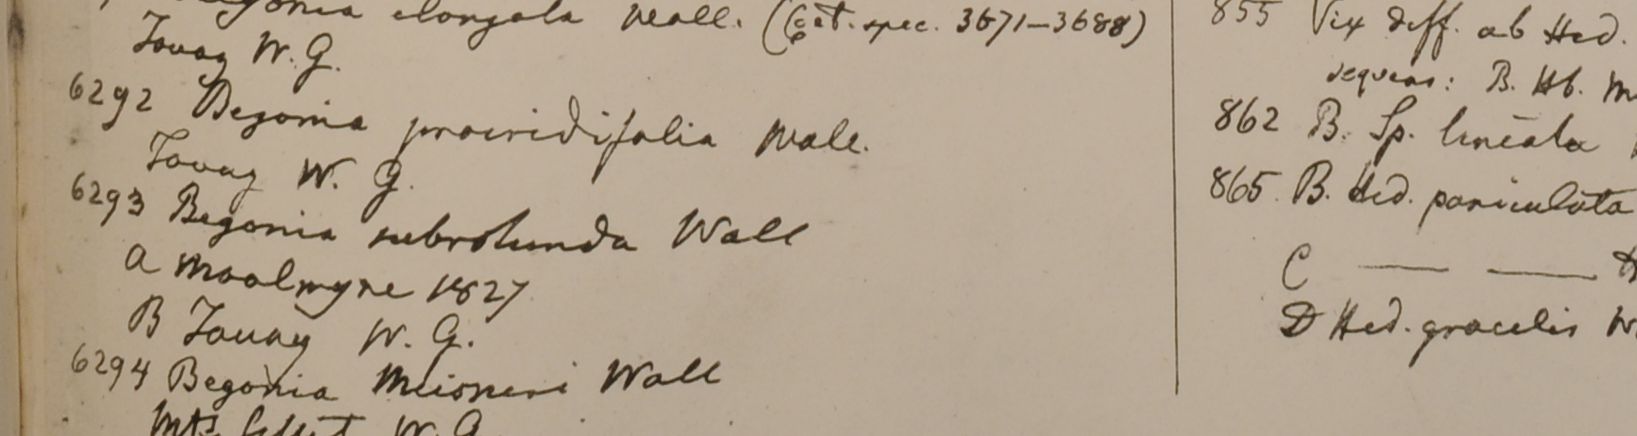 Begonia elongata Wall. (Cat. spec. 3671-3688)
Tavoy W. G.
6292 Begonia procridifolia Wall.
Tavoy W. G.
6293 Begonia subrotunda Wall
A Moolmyne 1827
B Tavoy W. G.
6294 Begonia Meisneri Wall
Mts W. G.
855 Vix diff. ab Hed.
sequens: B. Hb.
862 B. Sp. lineata
865. B. Hed. paniculata
C — —
D Hed. gracilis